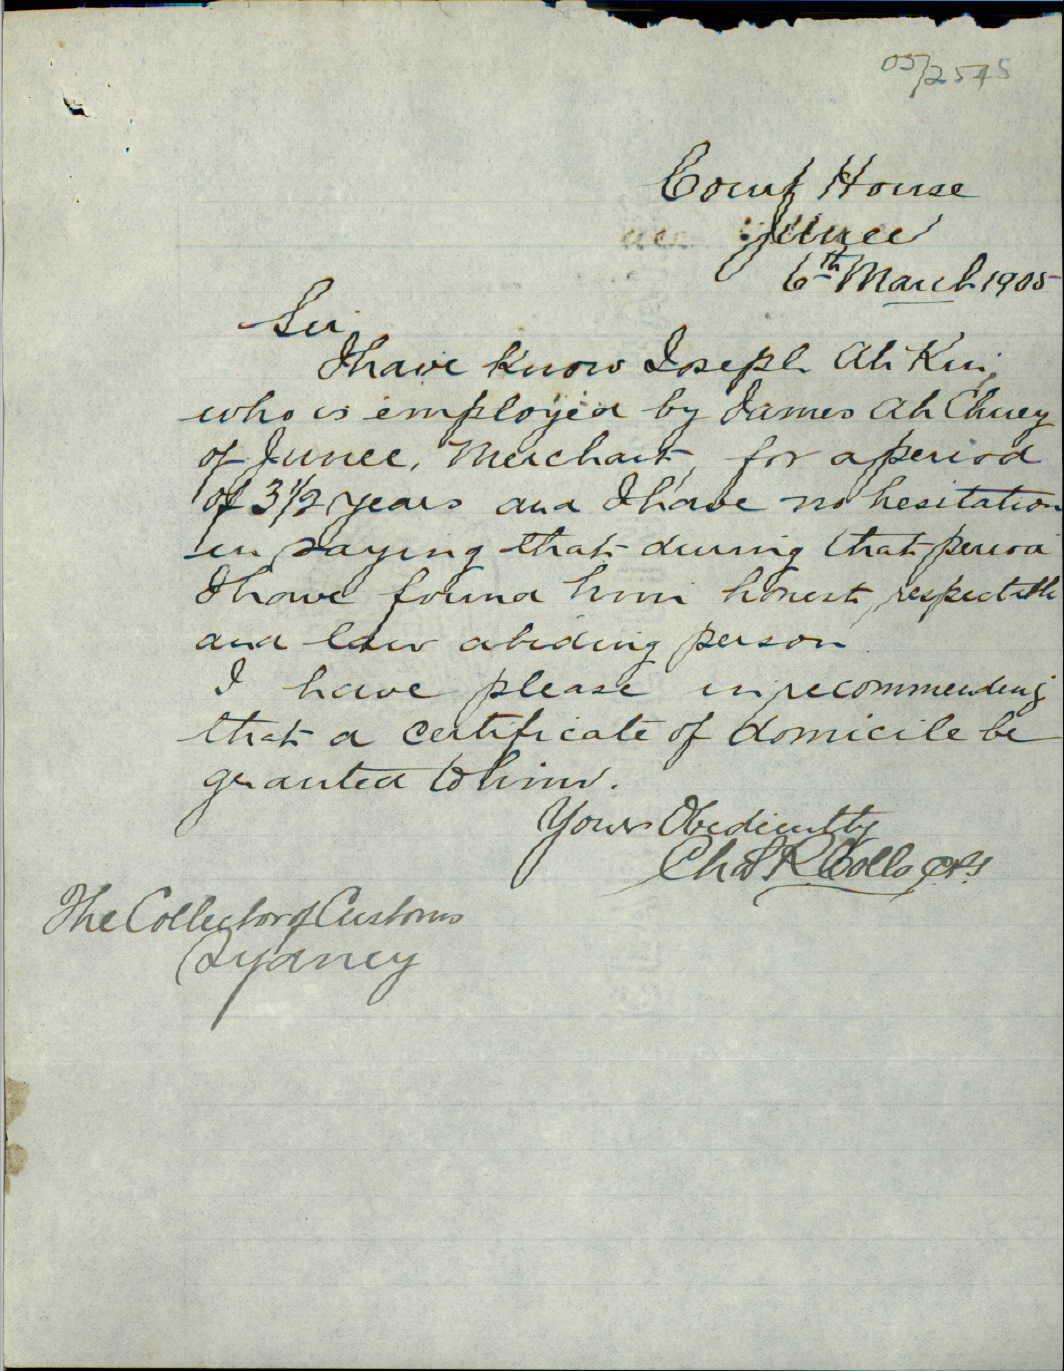 05/2545
Court House
Junee
6th March 1905
Sir
I have know Joseph Ah Kin,
who is employed by James Ah Chuey
of Junee, Merchant, for a period
of 3 1/2 years and I have no hesitation
in saying that during that period
I have found him honest, respectable
and law abiding person
I have please in recommending
that a certificate of domicile be
granted to him.
Yours Obediently
Chas R Collo
The Collector of Customs
Sydney